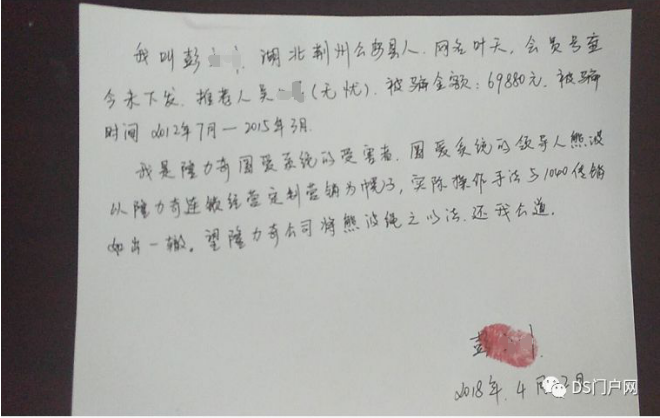 我叫彭 湖北荆州公安县人. 网名叶天, 会员号至
今未下发. 推荐人吴 (无忧). 被骗金额: 69880元. 被骗
时间 2012年7月—2015年3月.
我是隆力奇因爱系统的受害者. 因爱系统的领导人熊波
以隆力奇连锁经营定制营销为幌子, 实际操作手法与1040传销
如出一辙. 望隆力奇公司将熊波绳之以法. 还我公道.
彭
2018年. 4月 月
DS门户网